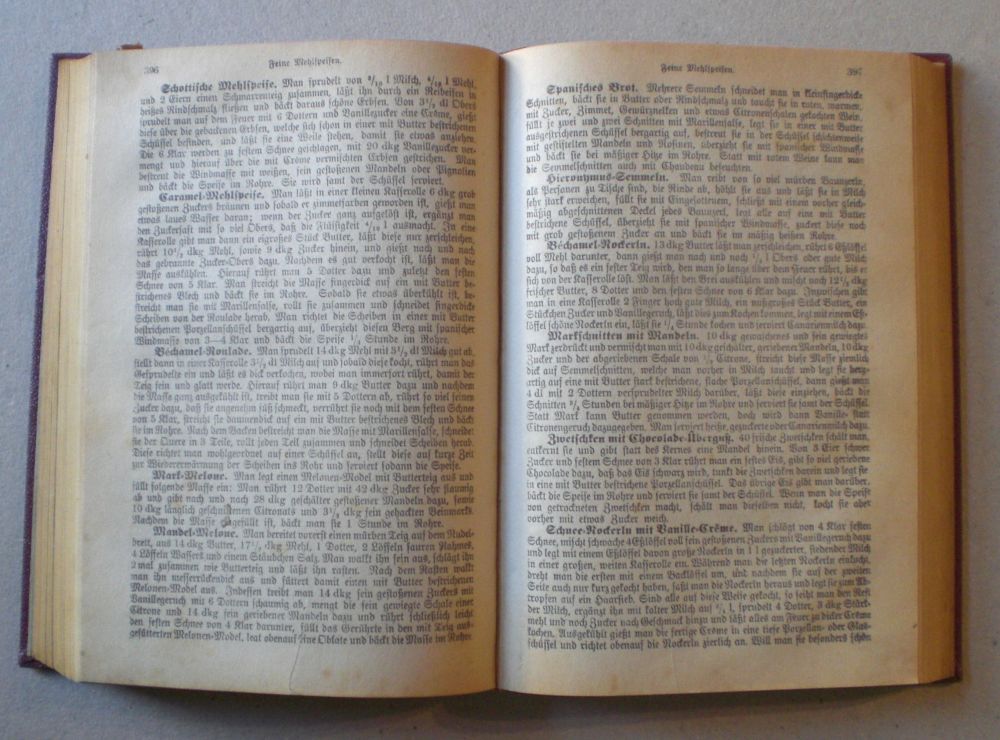 396
Feine Mehlspeisen.
Schottische Mehlspeise. Man sprudelt von 3/10 l Milch, 4/10 l Mehl,
und 2 Eiern einen Schmarrenteig zusammen, läßt ihn durch ein Reibeisen in
heißes Rindschmalz fließen und bäckt daraus schöne Erbsen. Von 3 1/2 dl Obers
sprudelt man auf dem Feuer mit 6 Dottern und Vanillezucker eine Crème, gießt
diese über die gebackenen Erbsen, welche sich schon in einer mit Butter bestrichenen
Schüssel befinden, und läßt sie eine Weile stehen, damit sie etwas anziehen.
Die 6 Klar werden zu festem Schnee geschlagen, mit 20 dkg Vanillezucker ver-
mengt und hierauf über die mit Crème vermischten Erbsen gestrichen. Man
bestreut die Windmasse mit weißen, fein gestoßenen Mandeln oder Pignolien
und bäckt die Speise im Rohre. Sie wird samt der Schüssel serviert.
Caramel-Mehlspeise. Man läßt in einer kleinen Kasserolle 6 dkg grob
gestoßenen Zuckers bräunen und sobald er zimmetfarben geworden ist, gießt man
etwas laues Wasser daran; wenn der Zucker ganz aufgelöst ist, ergänzt man
den Zuckersaft mit so viel Obers, daß die Flüssigkeit 4/10 l ausmacht. In eine
Kasserolle gibt man dann ein eigroßes Stück Butter, läßt diese nur zerschleichen,
rührt 10 1/2 dkg Mehl, sowie 9 dkg Zucker hinein, und gießt nach und nach
das gebrannte Zucker-Obers dazu. Nachdem es gut verkocht ist, läßt man die
Masse auskühlen. Hierauf rührt man 5 Dotter dazu und zuletzt den festen
Schnee von 5 Klar. Man streicht die Masse fingerdick auf ein mit Butter be-
strichenes Blech und bäckt sie im Rohre. Sobald sie etwas überkühlt ist, be-
streicht man sie mit Marillensalse, rollt sie zusammen und schneidet fingerdicke
Scheiben von der Roulade herab. Man richtet die Scheiben in einer mit Butter
bestrichenen Porzellanschüssel bergartig auf, überzieht diesen Berg mit spanischer
Windmasse von 3—4 Klar und bäckt die Speise 1/2 Stunde im Rohre.
Béchamel-Roulade. Man sprudelt 14 dkg Mehl mit 3 1/2 dl Milch gut ab,
stellt dann in einer Kasserolle 3 1/2 dl Milch auf und sobald diese kocht, rührt man das
Gesprudelte ein und läßt es dick verkochen, wobei man immerfort rührt, damit der
Teig fein und glatt werde. Hierauf rührt man 9 dkg Butter dazu und nachdem
die Masse ganz ausgekühlt ist, treibt man sie mit 5 Dottern ab, rührt so viel feinen
Zucker dazu, daß sie angenehm süß schmeckt, verrührt sie noch mit dem festen Schnee
von 5 Klar, streicht sie daumendick auf ein mit Butter bestrichenes Blech und bäckt
sie im Rohre. Nach dem Backen bestreicht man die Masse mit Marillensalse, schneidet
sie der Quere in 3 Teile, rollt jeden Teil zusammen und schneidet Scheiben herab.
Diese richtet man wohlgeordnet auf einer Schüssel an, stellt diese auf kurze Zeit
zur Wiedererwärmung der Scheiben ins Rohr und serviert sodann die Speise.
Mark-Melone. Man legt einen Melonen-Model mit Butterteig aus und
füllt folgende Masse ein: Man rührt 12 Dotter mit 42 dkg Zucker sehr flaumig
ab und gibt nach und nach 28 dkg geschälter gestoßener Mandeln dazu, sowie
10 dkg länglich geschnittenen Citronats und 3 1/2 dkg fein gehackten Beinmarks.
Nachdem die Masse eingefüllt ist, bäckt man sie 1 Stunde im Rohre.
Mandel-Melone. Man bereitet vorerst einen mürben Teig auf dem Nudel-
brett, aus 14 dkg Butter, 17 1/2 dkg Mehl, 1 Dotter, 2 Löffeln sauren Rahmes,
4 Löffeln Wassers und einem Stäubchen Salz. Man walkt ihn fein aus, schlägt ihn
2 mal zusammen wie Butterteig und läßt ihn rasten. Nach dem Rasten walkt
man ihn messerrückendick aus und füttert damit einen mit Butter bestrichenen
Melonen-Model aus. Indessen treibt man 14 dkg fein gestoßenen Zuckers mit
Vanillegeruch mit 6 Dottern schaumig ab, mengt die fein gewiegte Schale einer
Citrone und 14 dkg fein geriebener Mandeln dazu und rührt schließlich leicht
den festen Schnee von 4 Klar darunter, füllt das Gerührte in den mit Teig aus-
gefütterten Melonen-Model, legt obenauf eine Oblate und bäckt die Masse im Rohre
Feine Mehlspeisen.
397
Spanisches Brot. Mehrere Semmeln schneidet man in kleinfingerdicke
Schnitten, bäckt sie in Butter oder Rindschmalz und taucht sie in roten, warmen,
mit Zucker, Zimmet, Gewürznelken und etwas Citronenschalen gekochten Wein,
füllt je zwei und zwei Schnitten mit Marillensalse, legt sie in einer mit Butter
ausgestrichenen Schüssel bergartig auf, bestreut sie in der Schüssel schichtenweise
mit gestiftelten Mandeln und Rosinen, überzieht sie mit spanischer Windmasse
und bäckt sie bei mäßiger Hitze im Rohre. Statt mit rotem Weine kann man
die Semmelschnitten auch mit Chaudeau befeuchten.
Hieronymus-Semmeln. Man reibt von so viel mürben Baunzerln,
als Personen zu Tische sind, die Rinde ab, höhlt sie aus und läßt sie in Milch
sehr stark erweichen, füllt sie mit Eingesottenem, schließt mit einem vorher gleich-
mäßig abgeschnittenen Deckel jedes Baunzerl, legt alle auf eine mit Butter
bestrichene Schüssel, überzieht sie mit spanischer Windmasse, zuckert diese noch
mit grob gestoßenem Zucker an und bäckt sie im mäßig heißen Rohre.
Béchamel-Nockerln. 13 dkg Butter läßt man zerschleichen, rührt 6 Eßlöffel
voll Mehl darunter, dann gießt man nach und nach 1/2 l Obers oder gute Milch
dazu, so daß es ein fester Teig wird, den man so lange über dem Feuer rührt, bis er
sich von der Kasserolle löst. Man läßt den Brei auskühlen und mischt noch 12 1/2 dkg
frischer Butter, 8 Dotter und den festen Schnee von 6 Klar dazu. Inzwischen gibt
man in eine Kasserolle 2 Finger hoch gute Milch, ein nußgroßes Stück Butter, ein
Stückchen Zucker und Vanillegeruch, läßt dies zum Kochen kommen, legt mit einem Eß-
löffel schöne Nockerln ein, läßt sie 1/4 Stunde kochen und serviert Canarienmilch dazu.
Markschnitten mit Mandeln. 10 dkg gewaschenes und fein gewiegtes
Mark zerdrückt und vermischt man mit 10 dkg geschälter, geriebener Mandeln, 10 dkg
Zucker und der abgeriebenen Schale von 1/2 Citrone, streicht diese Masse ziemlich
dick auf Semmelschnitten, welche man vorher in Milch taucht und legt sie berg-
artig auf eine mit Butter stark bestrichene, flache Porzellanschüssel, dann gießt man
4 dl mit 2 Dottern versprudelter Milch darüber, läßt diese einziehen, bäckt die
Schnitten 3/4 Stunden bei mäßiger Hitze im Rohre und serviert sie samt der Schüssel.
Statt Mark kann Butter genommen werden, doch wird dann Vanille- statt
Citronengeruch dazugegeben. Man serviert heiße, gezuckerte oder Canarienmilch dazu.
Zwetschken mit Chocolade-Überguß. 40 frische Zwetschken schält man,
entkernt sie und gibt statt des Kernes eine Mandel hinein. Von 3 Eier schwer
Zucker und festem Schnee von 3 Klar rührt man ein festes Eis, gibt so viel geriebene
Chocolade dazu, daß das Eis schwarz wird, tunkt die Zwetschken darein und legt sie
in eine mit Butter bestrichene Porzellanschüssel. Das übrige Eis gibt man darüber,
bäckt die Speise im Rohre und serviert sie samt der Schüssel. Wenn man die Speise
von getrockneten Zwetschken macht, schält man dieselben nicht, kocht sie aber
vorher mit etwas Zucker weich.
Schnee-Nockerln mit Vanille-Crème. Man schlägt von 4 Klar festen
Schnee, mischt schwache 4 Eßlöffel voll fein gestoßenen Zuckers mit Vanillegeruch dazu
und legt mit einem Eßlöffel davon große Nockerln in 1 l gezuckerter, siedender Milch
in einer großen, weiten Kasserolle ein. Während man die letzten Nockerln einlegt,
dreht man die ersten mit einem Backlöffel um, und nachdem sie auf der zweiten
Seite auch nur kurz gekocht haben, faßt man die Nockerln heraus und legt sie zum Ab-
tropfen auf ein Haarsieb. Sind alle auf diese Weise gekocht, so seiht man den Rest
der Milch, ergänzt ihn mit kalter Milch auf l, sprudelt 4 Dotter, 3 dkg Stärk-
mehl und noch Zucker nach Geschmack hinzu und läßt alles am Feuer zu dicker Crème
kochen. Ausgekühlt gießt man die fertige Crème in eine tiefe Porzellan- oder Glas-
schüssel und richtet obenauf die Nockerln zierlich an. Will man sie besonders schön